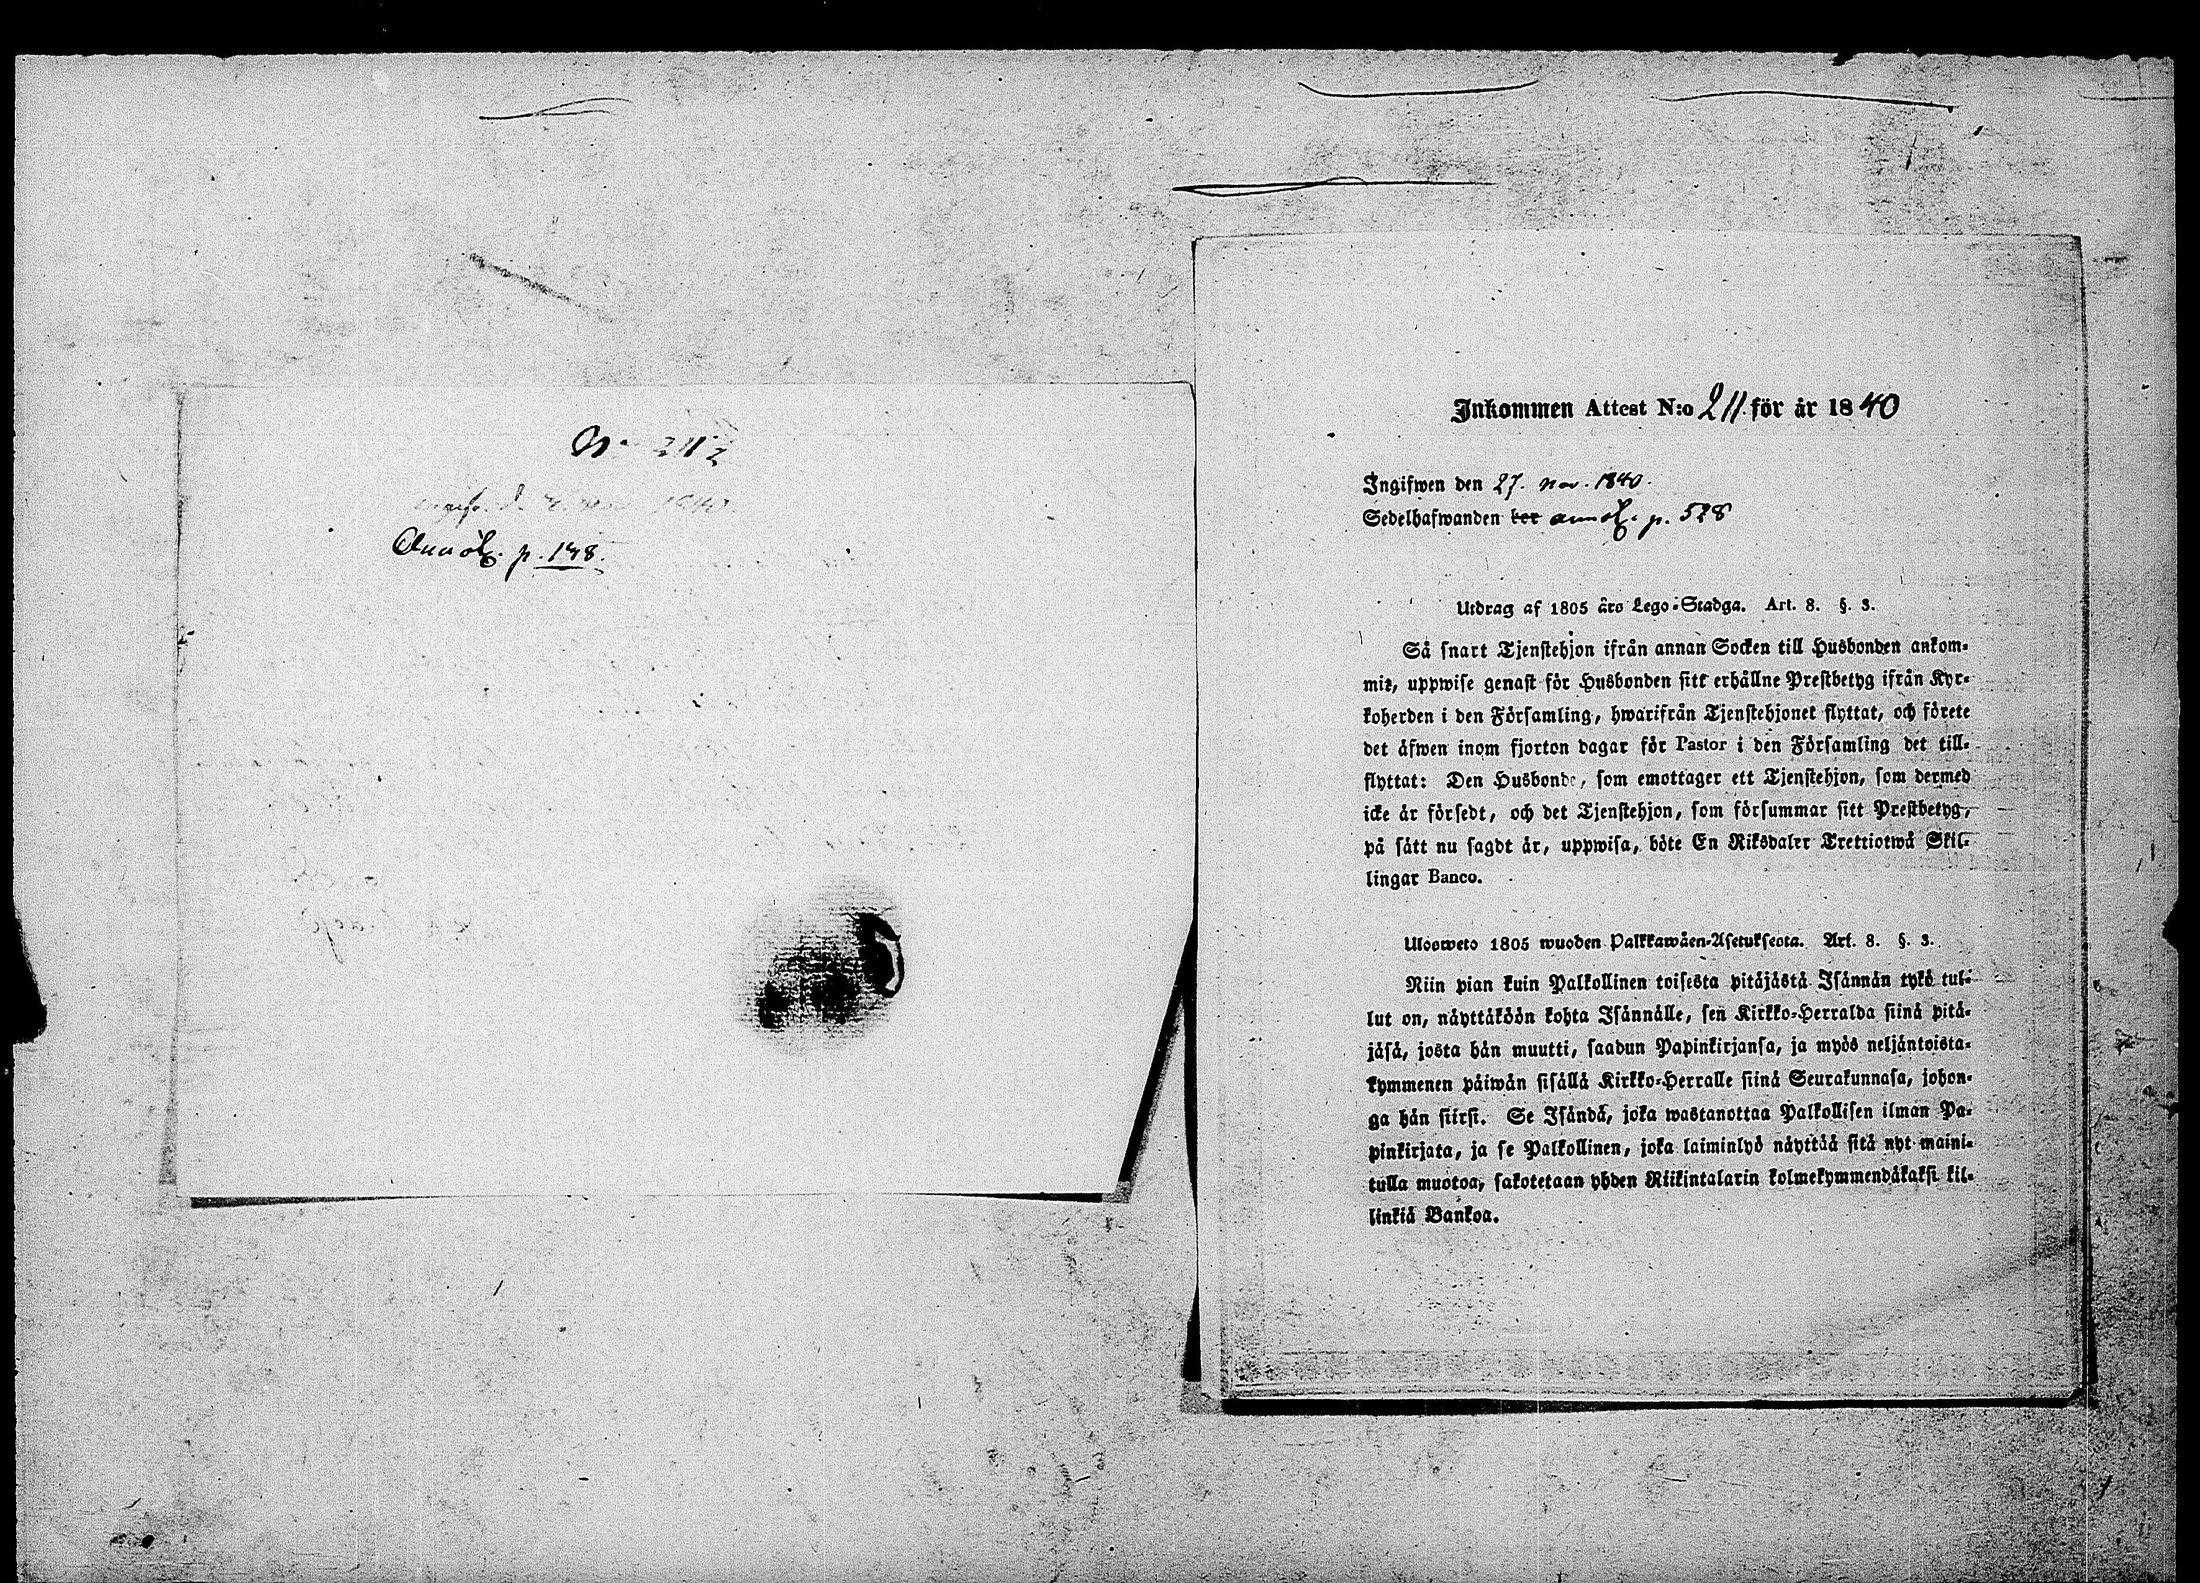 N. 211½
1840
Annot. p. 148.
Inkommen Attest N:o 211. för år 1840
Ingifwen den 27. nov. 1840.
Sedelhafwanden bor annot. p. 528
Utdrag af 1805 års Lego-Stadga. Art. 8. §. 3.
Så snart Tjenstehjon ifrån annan Socken till Husbonden ankom-
mit, uppwise genast för Husbonden sitt erhållne Prestbetyg ifrån Kyr-
koherden i den Församling, hwarifrån Tjenstehjonet flyttat, och förete
det äfwen inom fjorton dagar för Pastor i den Församling det till-
flyttat: Den Husbonde, som emottager ett Tjenstehjon, som dermed
icke är försedt, och det Tjenstehjon, som försummar sitt Prestbetyg,
på sätt nu sagdt är, uppwisa, böte En Riksdaler Trettiotwå Skil-
lingar Banco.
Ulosweto 1805 wuoden Palkkawäen-Asetuksesta. Art. 8. §. 3.
Niin pian kuin Palkollinen toisesta pitäjästä Isännän tykö tul-
lut on, näyttäköön kohta Isännälle, sen Kirkko-Herralda siinä pitä-
jäsä, josta hän muutti, saadun Papinkirjansa, ja myös neljäntoista-
kymmenen päiwän sisällä Kirkko-Herralle siinä Seurakunnasa, johon-
ga hän siirsi. Se Isändä, joka wastanottaa Palkollisen ilman Pa-
pinkirjata, ja se Palkollinen, joka laiminlyö näyttää sitä nyt maini-
tulla muotoa, sakotetaan yhden Riikintalarin kolmekymmendäkaksi kil-
linkiä Bankoa.